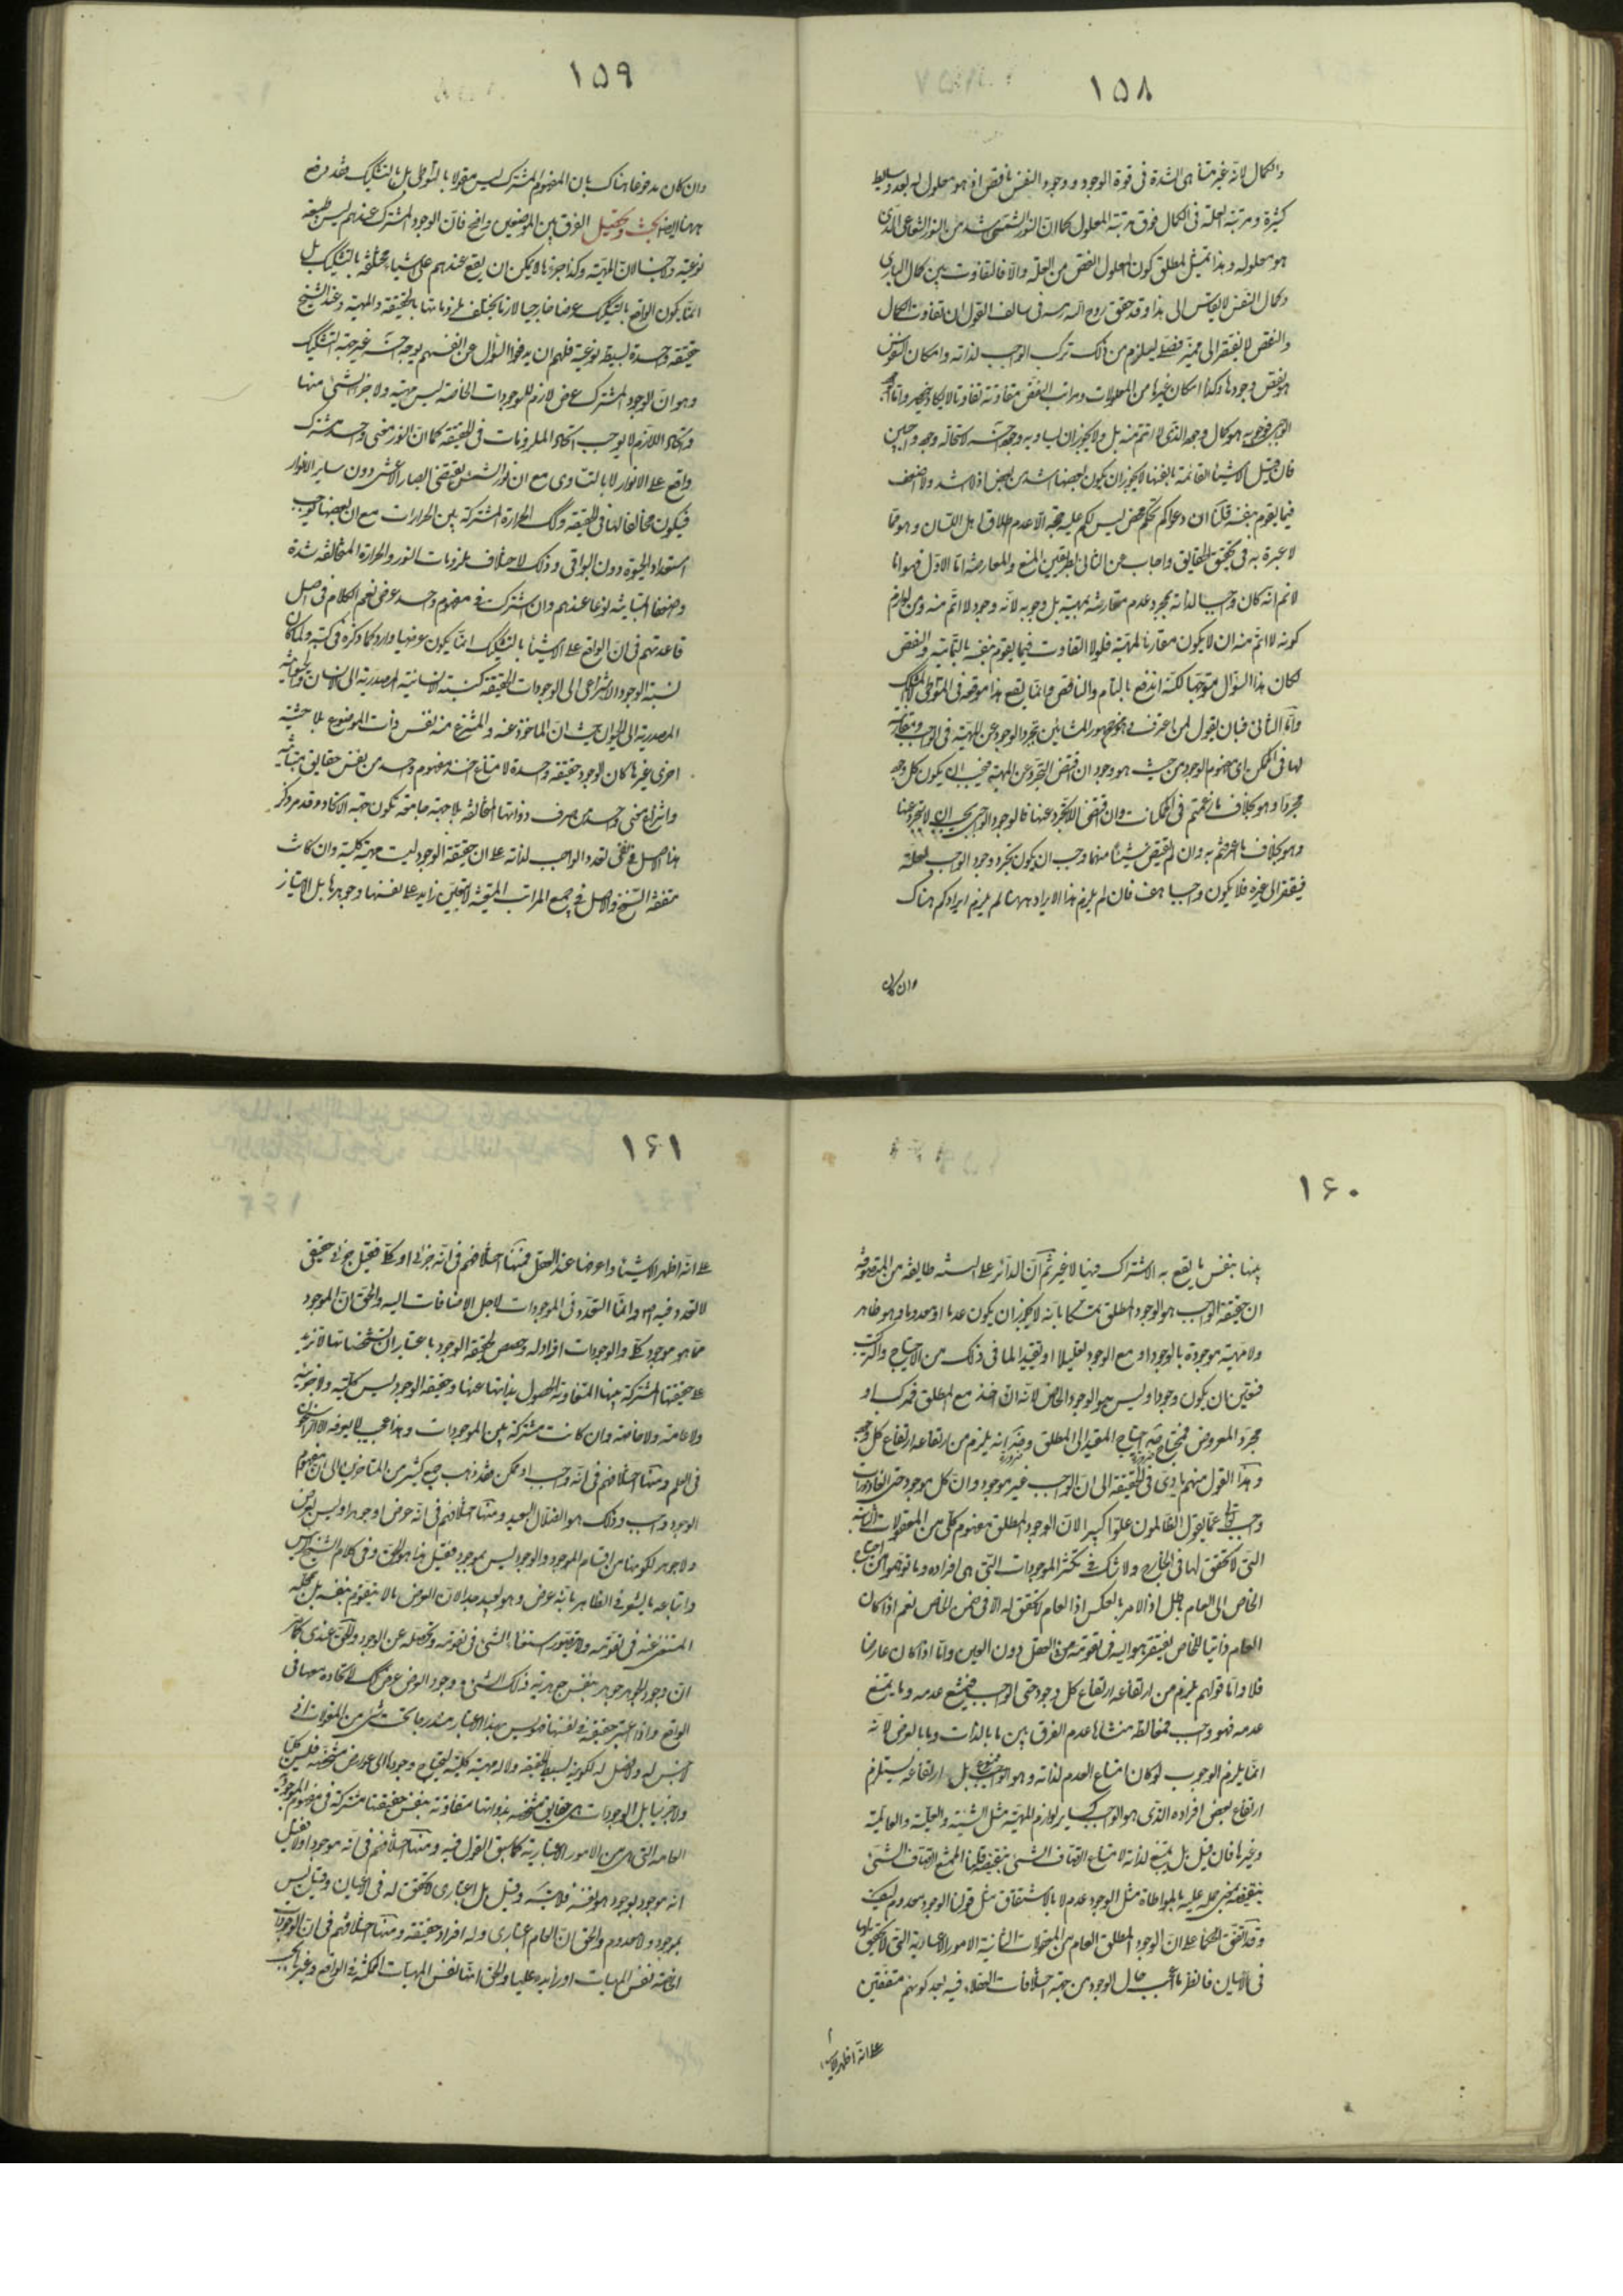 ١٥٨
والكمال لانه غير متناهى الشدة فى قوة الوجود و وجود النفس ناقص اذ هو معلول له بعد وسايط
كثيرة و مرتبة العلة فى الكمال فوق مرتبة المعلول كما ان النور الشمسى اشد من النور الشعاعى الذى
هو معلوله و هذا تمثيل لمطلق كون المعلول انقص من العلة والا فالتفاوت بين كمال البارى
وكمال النفس لا يقاس الى هذا وقد حقق روح الله رمسه فى سالف القول ان تفاوت الكمال
والنقص لا يفتقر الى مميز فصلى ليلزم من ذلك تركب الواجب لذاته وامكان النفوس
هو نقص وجودها وكذا امكان غيرها من المعلولات ومراتب النقص متفاوتة تفاوتا لا يكاد ينحصر واما
الوجود هو كمال وجوده الذى لا اتم منه بل ولا يجوز ان يساويه وجود آخر لاستحالة وجود واجبين
فان قيل الاشياء القائمة بانفسها لا يجوز ان يكون بعضها اشد من بعض اذ لا اشد ولا اضعف
فيما يقوم بنفسه قلنا ان دعواكم تحكم محض ليس لكم عليه حجة الا عدم اطلاق اهل اللسان و هو مما
لا عبرة به فى تحقيق الحقايق واجاب عن الثانى بطريقين المنع والمعارضة اما الاول فهو انا
لانم انه كان واجبا لذاته بمجرد عدم مقارنته بمهية بل وجوبه لانه وجود لا اتم منه ومن لوازم
كونه لا اتم منه ان لا يكون مقارنا لمهية فلولا التفاوت فيما يقوم بنفسه بالتمامية والنقص
لكان هذا السؤال متوجها لكنه اندفع بالتام والناقص وانما يقع هذا موقعه فى المتواطى
واما الثانى فبان يقول لمن اعترف وهو جمهور المشائين بتجرد الوجود عن المهية فى الواجب ومقارنته
لها فى الممكن اى مفهوم الوجود من حيث هو وجود ان اقتضى التجرد عن المهية فيجب ان يكون كل وجود
مجردا وهو بخلاف ما زعمتم فى الممكنات وان اقتضى اللاتجرد عنها فالوجود الواجبى يجب ان لا يتجرد عنها
وهو بخلاف ما اعترفتم به وان لم يقتض شيئا منهما وجب ان يكون تجرد وجود الواجب لعلة
فيفتقر الى غيره فلا يكون واجبا هف فان لم يلزم هذا الايراد ههنا لم يلزم ايرادكم هناك
وان كان
١٥٩
وان كان مدفوعا هناك بان المفهوم المشترك ليس مقولا بالتواطى بل بالتشكيك فقد مر دفع
ههنا ايضا بحث وتحصيل الفرق بين الموضعين واضح فان الوجود المشترك عندهم ليس طبيعة
نوعية ولا جنسا لان المهية وكذا جزءها لا يمكن ان يقع عندهم على اشياء مختلفة بالتشكيك بل
انما يكون الواقع بالتشكيك عرضا خارجيا لازما يختلف ملزوماتها بالحقيقة والمهية وعند الشيخ
حقيقة واحدة بسيطة نوعية فلهم ان يدفعوا السؤال عن انفسهم بوجه آخر غير جهة التشكيك
وهو ان الوجود المشترك عرض لازم للوجودات الخاصة ليس مهية ولا جزء لشئ منها
واتحاد اللازم لا يوجب اتحاد الملزومات فى الحقيقة كما ان النور معنى واحد مشترك
واقع على الانوار لا بالتساوى مع ان نور الشمس يقتضى ابصار الاعشى دون ساير الانوار
فيكون مخالفا لها فى الحقيقة وكك الحرارة المشتركة بين الحرارات مع ان بعضها يوجب
استعداد الحيوة دون البواقى وذلك لاختلاف ملزومات النور والحرارة المتخالفة شدة
وضعفا المتباينة نوعا عندهم وان اشتركت فى مفهوم واحد عرضى نعم الكلام فى اصل
قاعدتهم فى ان الواقع على الاشياء بالتشكيك انما يكون عرضيا وارد كما ذكره فى كتبه ولما كان
نسبة الوجود الانتزاعى الى الوجودات الحقيقة كنسبة الانسانية المصدرية الى الانسان والحيوانية
المصدرية الى الحيوان حيث ان الماخوذ عنه والمنتزع منه نفس ذات الموضوع بلا حيثية
اخرى غيرها كان الوجود حقيقة واحدة لامتناع اخذ مفهوم واحد من نفس حقايق متباينة
وانتزاع معنى واحد من صرف ذواتها المتخالفة بلا جهة جامعة تكون جهة الاتحاد وقد مر ذكر
هذا الاصل فى نفى تعدد الواجب لذاته على ان حقيقة الوجود ليست مهية كلية وان كانت
متفقة السنخ والاصل فى جميع المراتب المتعينة لا بتعين زايد على نفسها وجوهرها بل الامتياز
١۶٠
بينها بنفس ما يقع به الاشتراك فيها لا غير ثم ان الدائر على السنة طايفة من المتصوفة
ان حقيقة الواجب هو الوجود المطلق تمسكا بانه لا يجوز ان يكون عدما او معدوما وهو ظاهر
ولا مهية موجودة بالوجود او مع الوجود تعليلا او تقييدا لما فى ذلك من الاحتياج والتركيب
فتعين ان يكون وجودا وليس هو الوجود الخاص لانه ان اخذ مع المطلق فمركب او
مجرد المعروض فمحتاج ضرورة احتياج المقيد الى المطلق وضرورة انه يلزم من ارتفاعه ارتفاع كل وجود
وهذا القول منهم يؤدى فى الحقيقة الى ان الواجب غير موجود وان كل موجود حتى القاذورات
واجب تعالى عما يقول الظالمون علوا كبيرا لان الوجود المطلق مفهوم كلى من المعقولات الثانية
التى لا تحقق لها فى الخارج ولا شك فى تكثر الموجودات التى هى افراده وما توهموا من احتياج
الخاص الى العام باطل اذ الامر بالعكس اذ العام لا تحقق له الا فى ضمن الخاص نعم اذا كان
العام ذاتيا للخاص يفتقر هو اليه فى تقومه فى العقل دون العين واما اذا كان عارضا
فلا واما قولهم يلزم من ارتفاعه ارتفاع كل وجود حتى الواجب فيمتنع عدمه وما يمتنع
عدمه فهو واجب فمغالطة منشاها عدم الفرق بين ما بالذات وما بالعرض لانه
انما يلزم الوجوب لو كان امتناع العدم لذاته وهو ممنوع بل ارتفاعه يستلزم
ارتفاع بعض افراده الذى هو الواجب كساير لوازم المهية مثل الشيئية والعلية والعالمية
وغيرها فان قيل بل يمتنع لذاته لامتناع اتصاف الشئ بنقيضه قلنا الممتنع اتصاف الشئ
بنقيضه بمعنى حمله عليه بالمواطاة مثل الوجود عدم لا بالاشتقاق مثل قولنا الوجود معدوم كيف
وقد اتفق الحكماء على ان الوجود المطلق العام من المعقولات الثانية الامور الاعتبارية التى لا تحقق لها
فى الاعيان فانظر ما اعجب حال الوجود من جهة اختلافات العقلاء فيه بعد كونهم متفقين
على انه اظهر الاشياء
١۶١
على انه اظهر الاشياء واعرفها عند العقل فمنها اختلافهم فى انه جزئى او كلى فقيل جزئى حقيقى
لا تعدد فيه اصلا وانما التعدد فى الموجودات لاجل الاضافات اليه والحق ان الموجود
بما هو موجود كلى والوجودات افراد له وحصص لحقيقة الوجود باعتبار ان تشخصاتها لا تزيد
على حقيقتها المشتركة بينها المتفاوتة الحصول بذاتها عنها وحقيقة الوجود ليس كلية ولا جزئية
ولا عامة ولا خاصة وان كانت مشتركة بين الموجودات وهذا عجيب لا يعرفه الا الراسخون
فى العلم ومنها اختلافهم فى انه واجب او ممكن فقد ذهب جمع كثير من المتاخرين الى ان مفهوم
الوجود واجب وذلك هو الضلال البعيد ومنها اختلافهم فى انه عرض او جوهر او ليس بعرض
ولا جوهر لكونهما من اقسام الموجود والوجود ليس بموجود فقيل هذا هو الحق وفى كلام الشيخ الرئيس
واتباعه ما يشعر فى الظاهر بانه عرض وهو بعيد جدا لان العرض ما لا يتقوم بنفسه بل بمحله
المستغنى عنه فى تقومه ولا يتصور استغناء الشئ فى تقومه وتحصله عن الوجود والحق عندى كما مر
ان وجود الجوهر جوهر بنفس جوهرية ذلك الشئ ووجود العرض عرض كك لاتحاده معهما فى
الواقع واذا اعتبر حقيقته فى نفسها فهو ليس بهذا الاعتبار مندرجا تحت شئ من المقولات اذ
لا جنس له ولا فصل له لكونه بسيط الحقيقة ولا له مهية كلية يحتاج فى وجودها الى عوارض مشخصة فليس كليا
ولا جزئيا بل الوجودات هى حقايق متشخصة بذواتها متفاوتة بنفس حقيقتها مشتركة فى مفهوم الموجودية
العامة التى هى من الامور الاعتبارية كما سبق القول فيه ومنها اختلافهم فى انه موجود او لا فقيل
انه موجود بوجود هو نفسه فلا يتسلسل وقيل بل اعتبارى لا تحقق له فى الاعيان وقيل ليس
بموجود ولا معدوم والحق ان العام اعتبارى وله افراد حقيقة ومنها اختلافهم فى ان الوجودات
الخاصة نفس المهيات او زايدة عليها والحق انها نفس المهيات الممكنة فى الواقع وغيرها بحسب